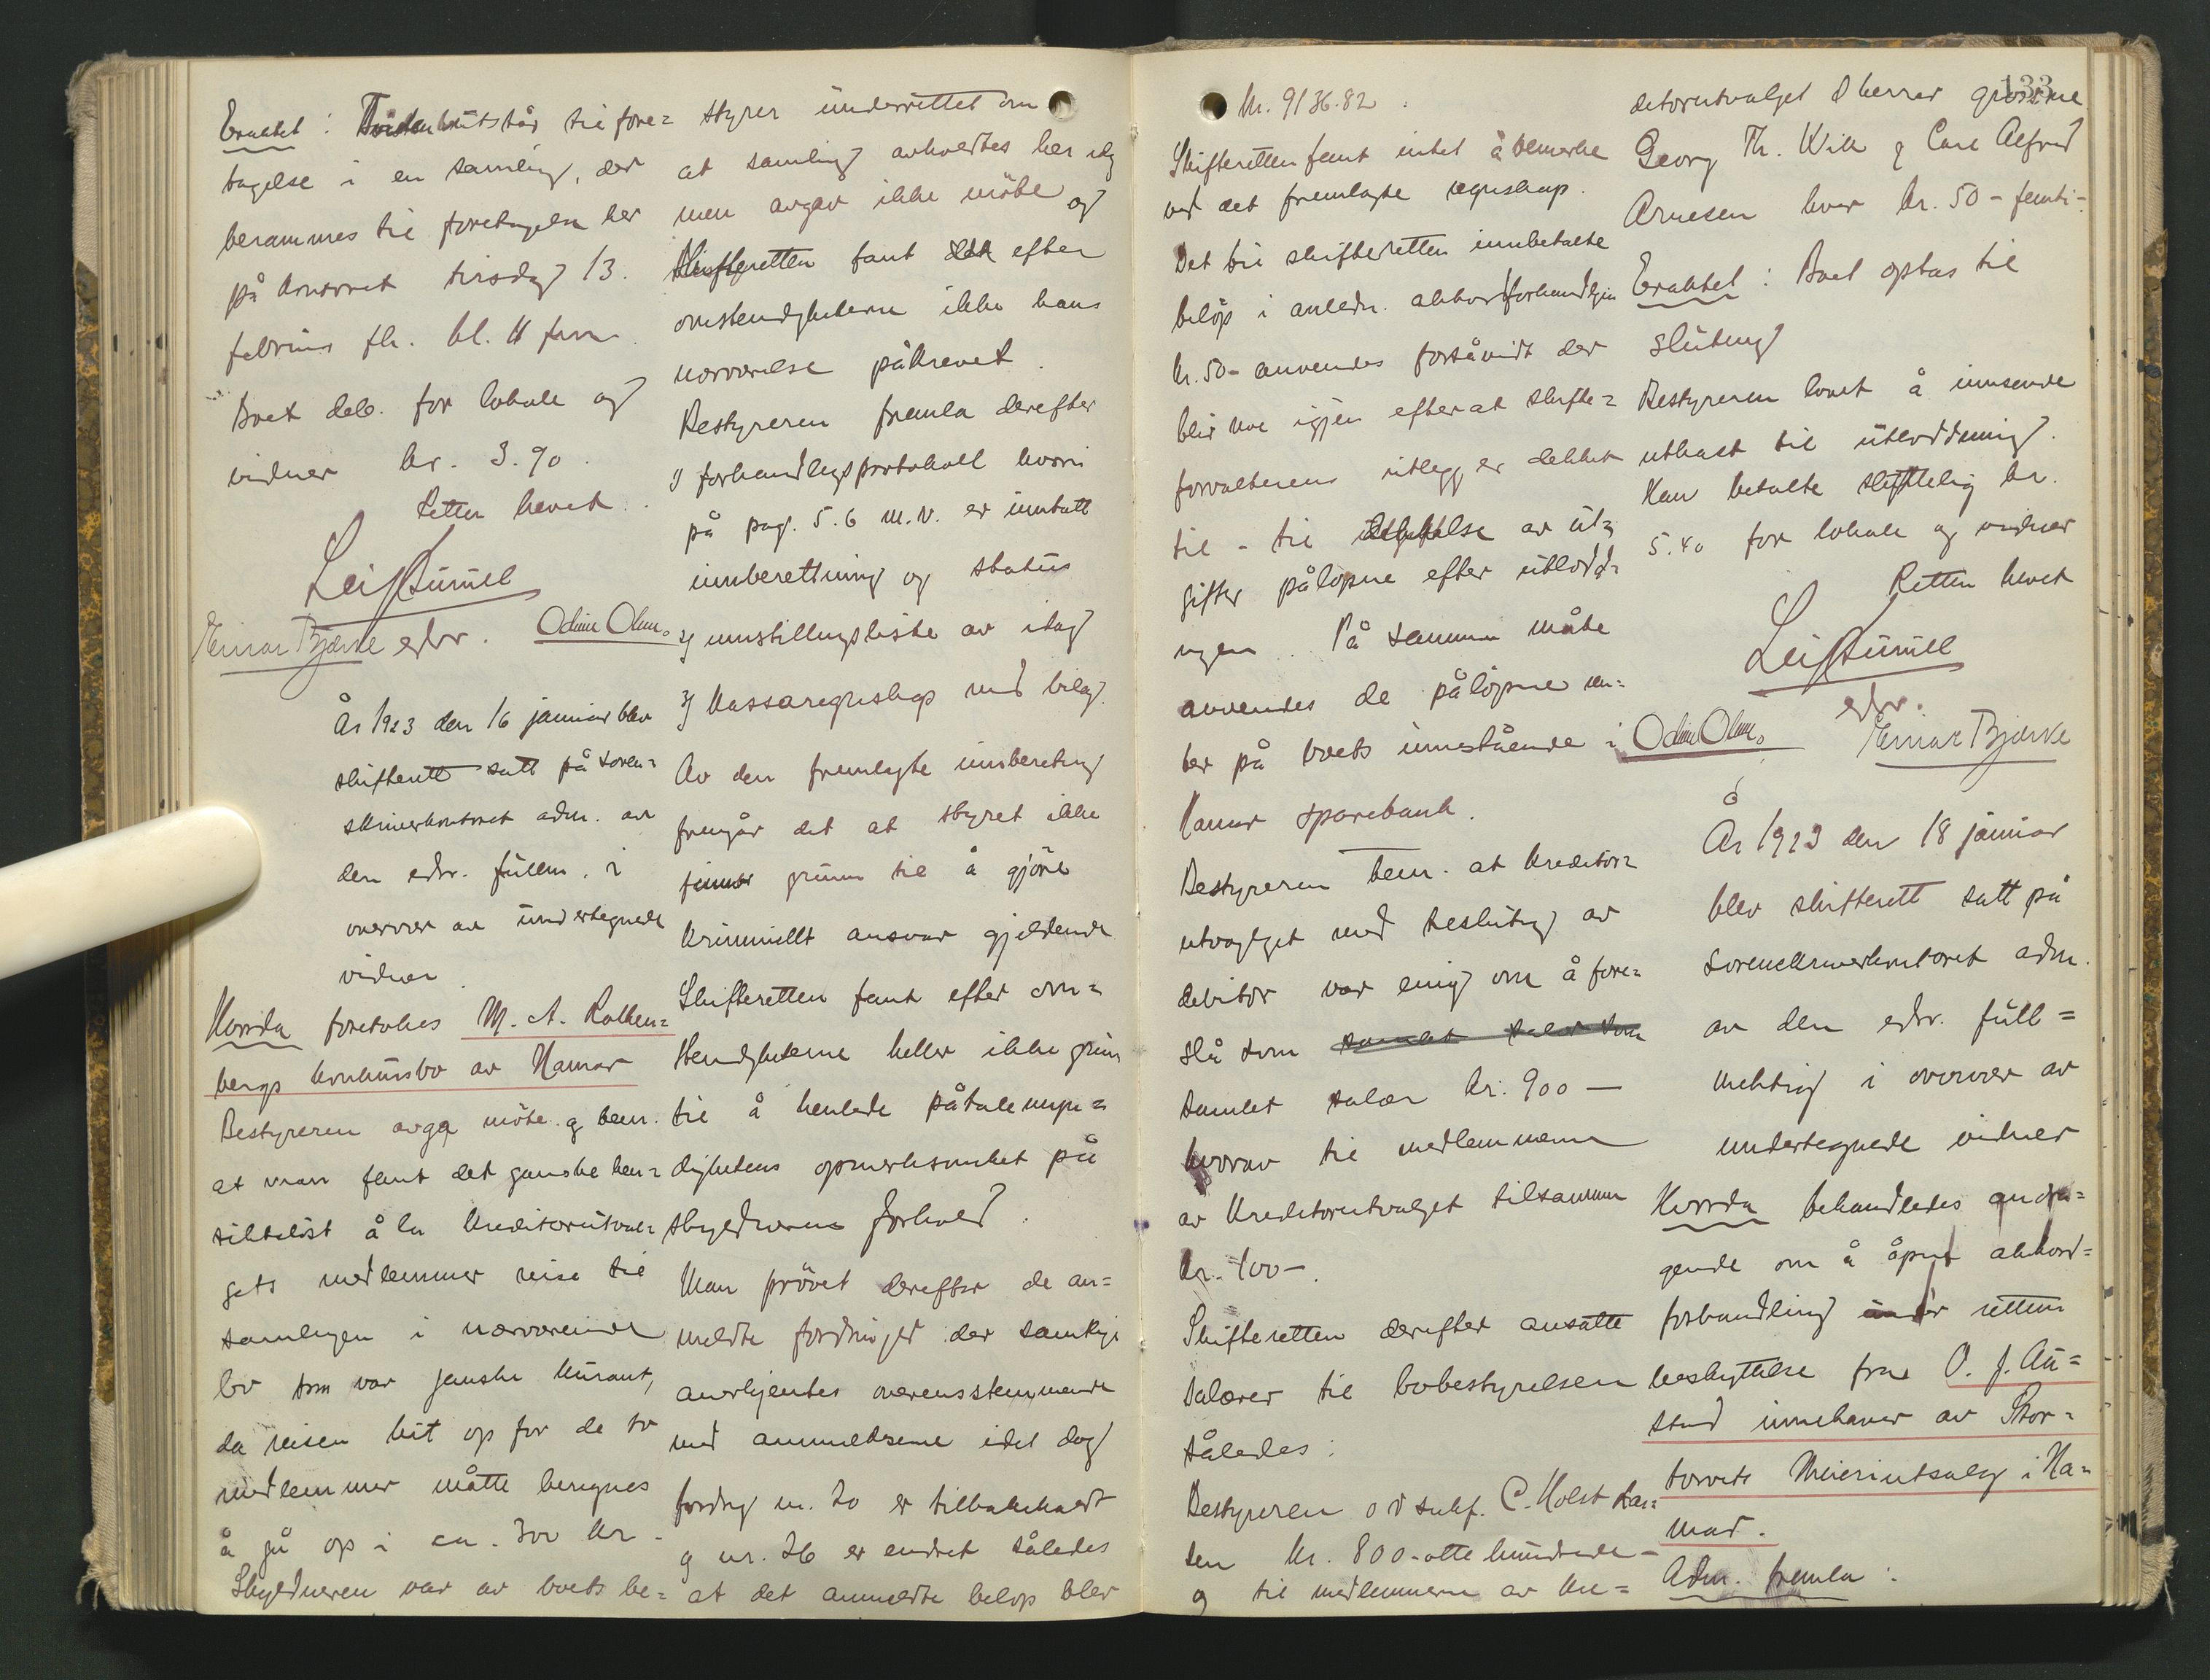 Eraktet: Tvisten utstår til fore=
tagelse i en samling, der
berammes til foretagelse her
på kontoret tirsdag 13.
februar fk. kl. 11 form.
Boet deb. for lokale og
vidner kr. 3.90.
Retten hevet.
Leif
Einar Bjørke edsv. Odin Olsen
År 1923 den 16 januar blev
skifterett satt på soren=
skriverkontoret adm. av
den edsv. fullm. i
overvær av undertegnede
vidner.
Hvorda foretokes M. A. Rothen=
bergs konkursbo av Hamar
Bestyreren avga møte og bem.
at man fant det ganske hen=
siktsløst å la kreditorutval=
gets medlemmer reise til
samlingen i nærværende
bo som var ganske kurant,
da reisen hit op for de to
medlemmer måtte beregnes
å gå op i ca. 300 kr.
Skyldneren var av boets be=
styrer underrettet om
at samling avholdtes her idag
men avgav ikke møte og
Skifteretten fant efter
omstendighetene ikke hans
nærværelse påkrevet.
Bestyreren fremla derefter
1) forhandlingsprotokoll hvori
på pag. 5.6 m.v. er inntatt
innberettning og status
2) innstillingsliste av idag
3) Kassaregnskap med bilag.
Av den fremlagte innberetning
fremgår det at styret ikke
finner grunn til å gjøre
kriminellt ansvar gjeldende
Skifteretten fant efter om=
stendighetene heller ikke grunn
til å henlede påtalemyn=
dighetens opmerksomhet på
skyldnerens forhold.
Man prøvet derefter de an=
meldte fordringer der samtlige
anerkjentes overensstemmende
med anmeldelsene idet dog
fordring nr. 20 er tilbakekaldt
og nr. 26 er endret således
at det anmeldte beløp blev
133
kr. 9136.82.
Skifteretten fant intet å bemerke
ved det fremlagte regnskap.
Det til skifteretten innbetalte
beløp i anledn. akkordforhandlingen
kr. 50- anvendes forsåvidt der
blir noe igjen efterat skifte=
forvalterens utlegg er dekket
til - til av ut=
gifter påløpne efter utlodd=
ngen. På samme måte
anvendes de påløpne ren=
ter på boets innestående i
Hamar sparebank.
Bestyreren bem. at kreditor=
utvalget med beslutning av
debitor var enig om å fore=
slå som
samlet salær kr. 900 —
hvorav til medlemmene
av kreditorutvalget tilsammen
kr. 100-.
Skifteretten derefter ansatte
salærer til bobestyrelsen
således:
Bestyreren o r sakf. C. Holst
kr. 800- otte hundrede -
og til medlemmerne av kre=
ditorutvalget d herrer grosserne
Georg Th. Wiik og Carl Alfred
Arnesen hver kr. 50 - femti-.
Eraktet: Boet optas til
slutning
Bestyreren lovet å innsende
utkast til utloddning.
Han betalte kr.
5.40 for lokale og vidner
Retten hevet
Leif
edsv.
Odin Olsen Einar Bjørke
År 1923 den 18 januar
blev skifterett satt på
sorenskriverkontoret adm.
av den edsv. full=
mektig i overvær av
undertegnede vidner
Hvorda behandledes andra=
gende om å åpne akkord=
forhandling under rettens
beskyttelse fra O. J. Au=
stad innehaver av Stor=
torvets Meieriutsalg i Ha=
mar.
Adm. fremla: